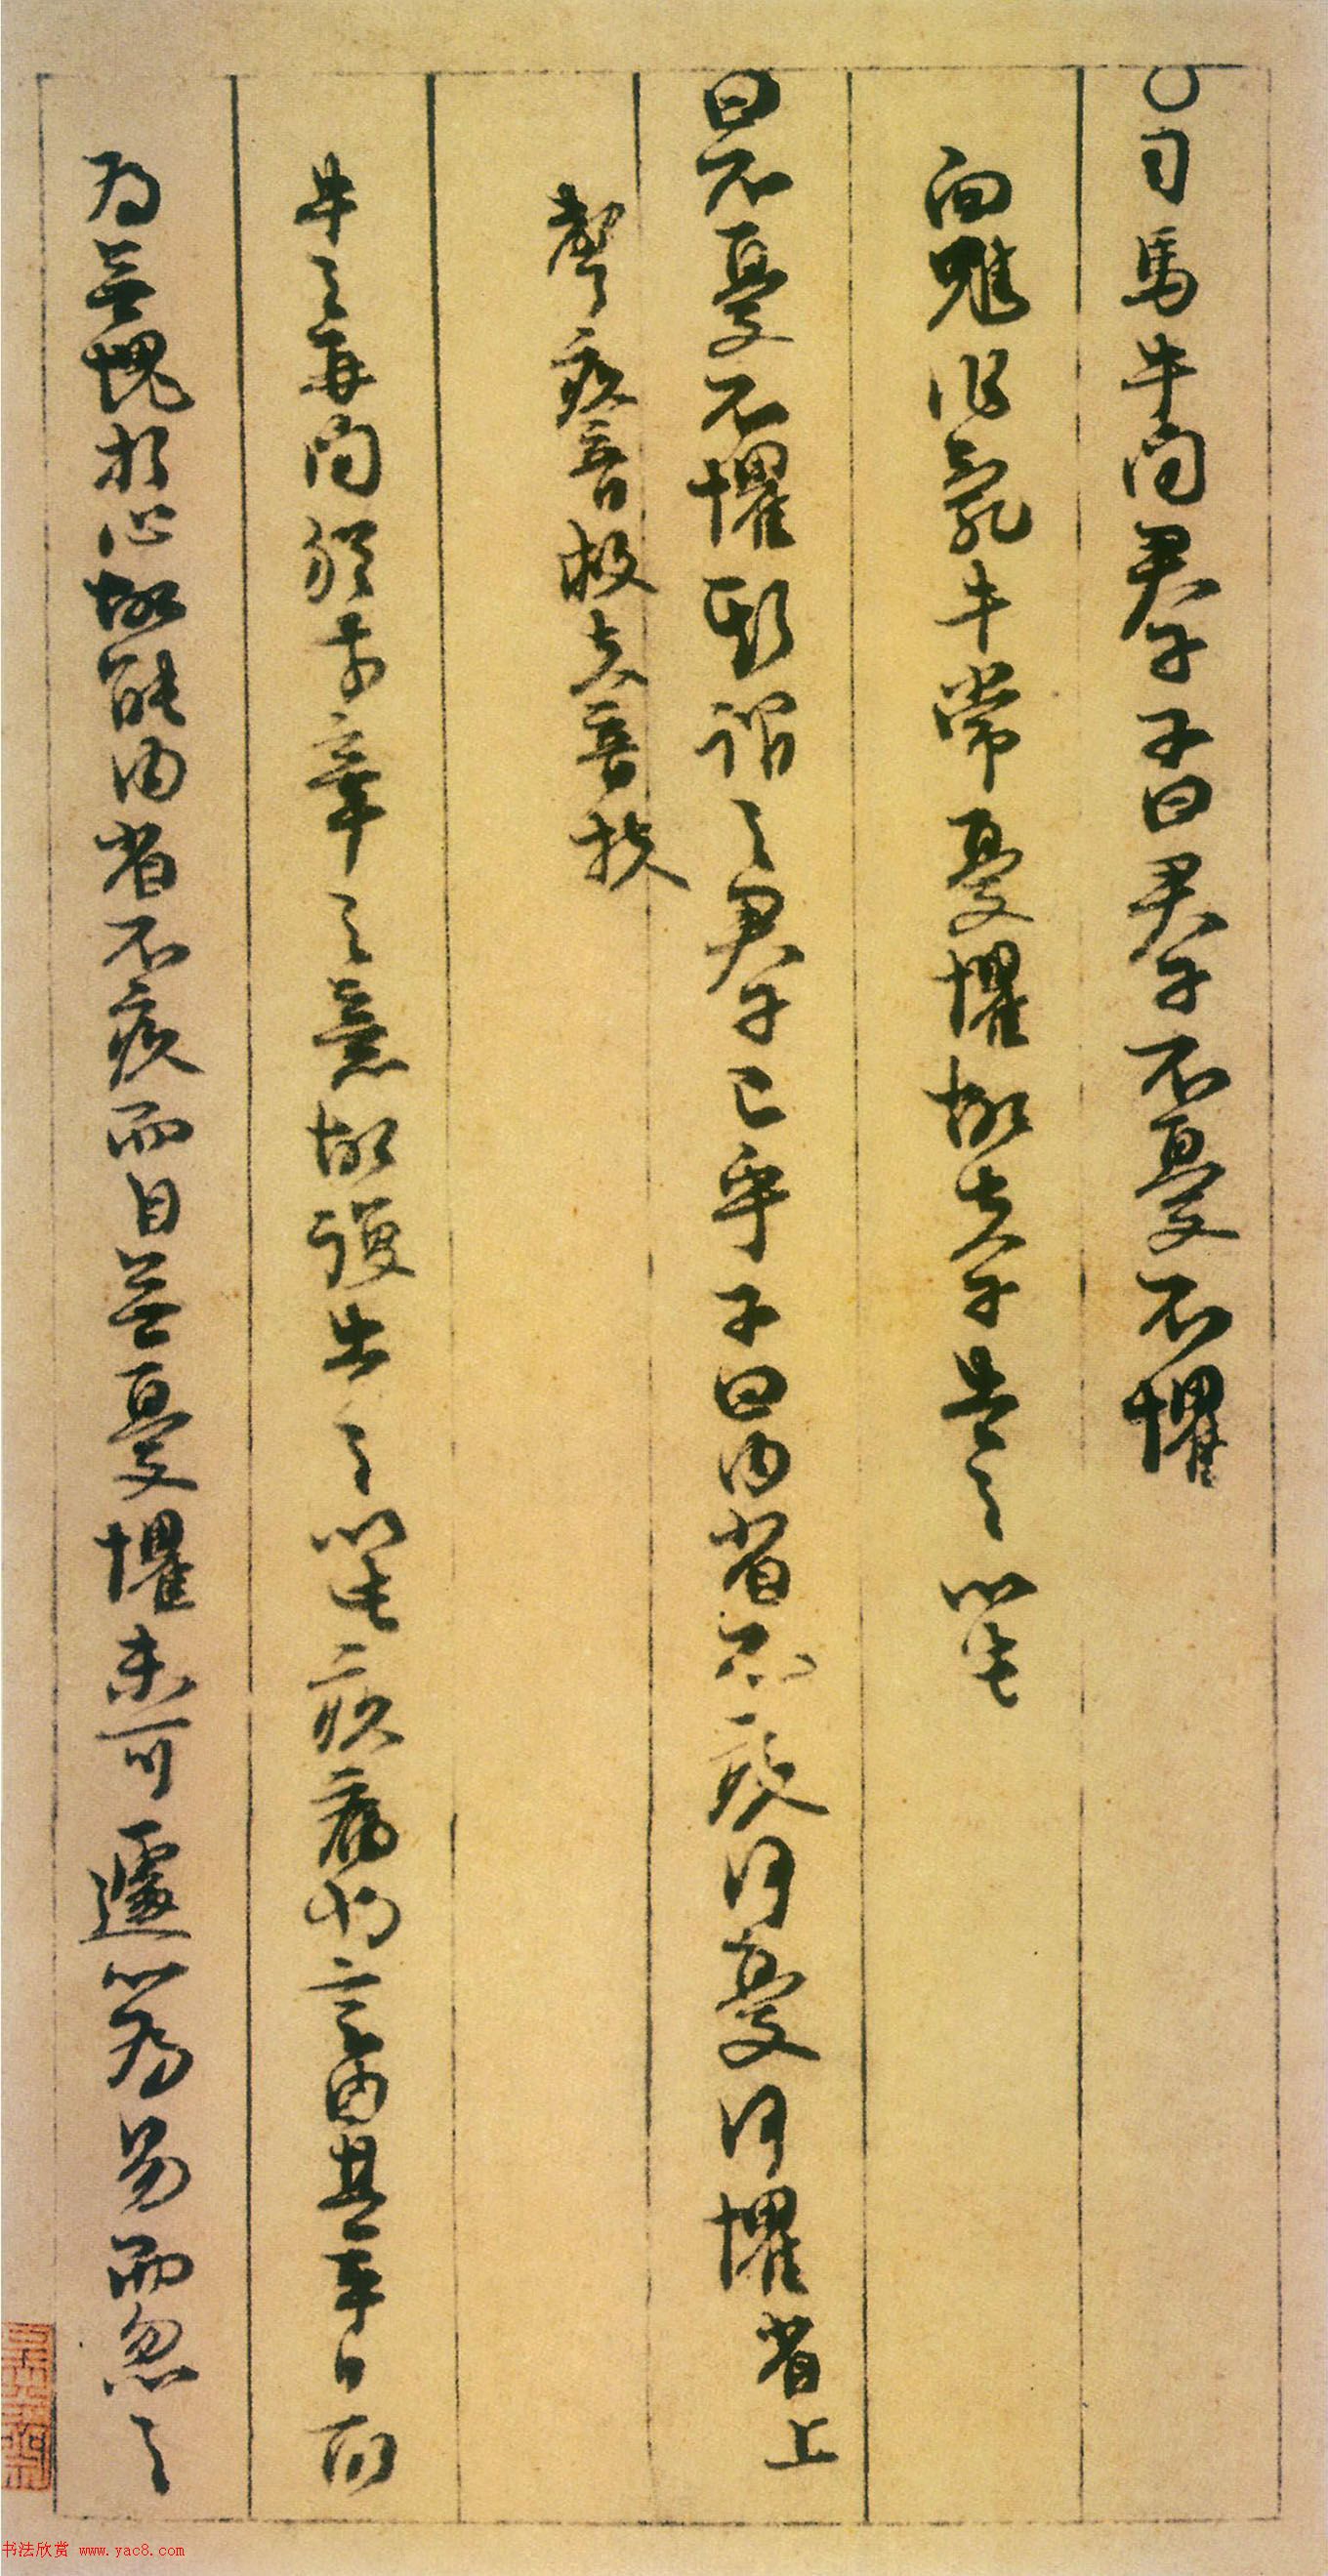 ○司馬牛問君子子曰君子不憂不懼
向魋作亂牛常憂懼故夫子告之以此
曰不憂不懼斯謂之君子已乎子曰內省不疚何憂何懼省上
聲疚音救夫音扶
牛之再問猶前章之意故復告之以此疚病也言由其平日所
為無愧於心故能內省不疚而自無憂懼未可遽以為易而忽之
书法欣赏 www.yac8.com